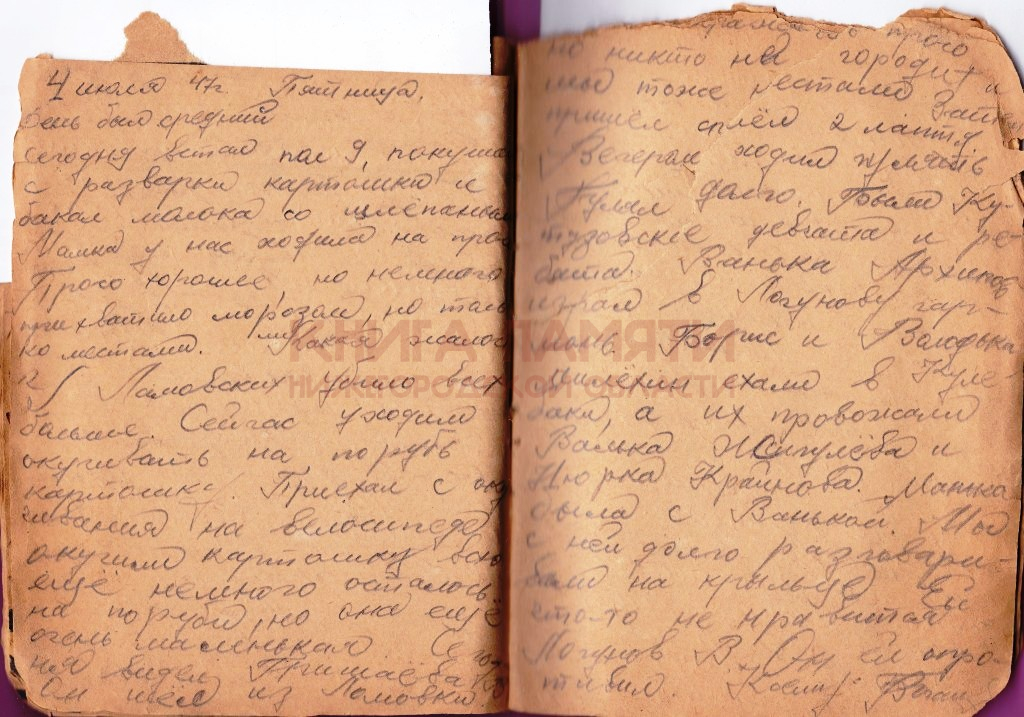 4 июля 47г. Пятница.
День был средний
Сегодня встал пол 9, покушал
с разварки картошки и
бакал молока со щлёпаным
Мамка у нас ходила на про
Просо хорошее, но немного
прихватило морозом, но толь
ко местами. Какая жалос
У Ломовских убило всех
больше. Сейчас уходил
окучивать на порубь
картошку. Приехал с оку
чивания на велосипеде
окучили картошку всю
ещё немного осталось
на поруби, но она ещё
очень маленькая. Сего
дня видел Гришаева
Он шёл из Ломовки
просо
но никто не городит и
мы тоже рестали
пришёл сплёл 2 лаптя.
Вечером ходил гулять
Гулял долго. Были Ку-
тузовские девчата и ре-
бята. Ванька Архипов
играл в Логунову гар-
монь. Борис и Валодька
ехали в Куле-
баки, а их провожали
Валька Жигулёва и
Нюрка Крайнова. Манька
была с Ванькой. Мы
с ней долго разговари-
вали на крыльце. Ей
что-то не нравится
Логунов В. Он ей опро-
тивил.
КНИГА ПАМЯТИ
НИЖЕГОРОДСКОЙ ОБЛАСТИ